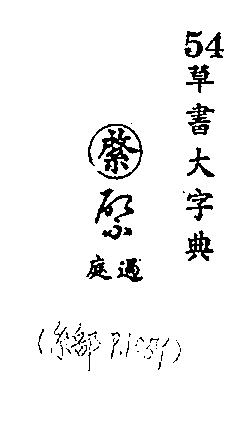 54
草書大字典
綮
過庭
(糸部